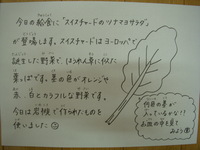 今日の給食に"スイスチャードのツナマヨサラダ"
が登場します。スイスチャードはヨーロッパで
誕生した野菜で、ほうれん草に似た
葉っぱです。茎の色がオレンジや
赤、白とカラフルな野菜です。
今日は岩根で作られたものを
使いました☺
何色の茎が
入っているかな??
お皿の中を見て
みよう